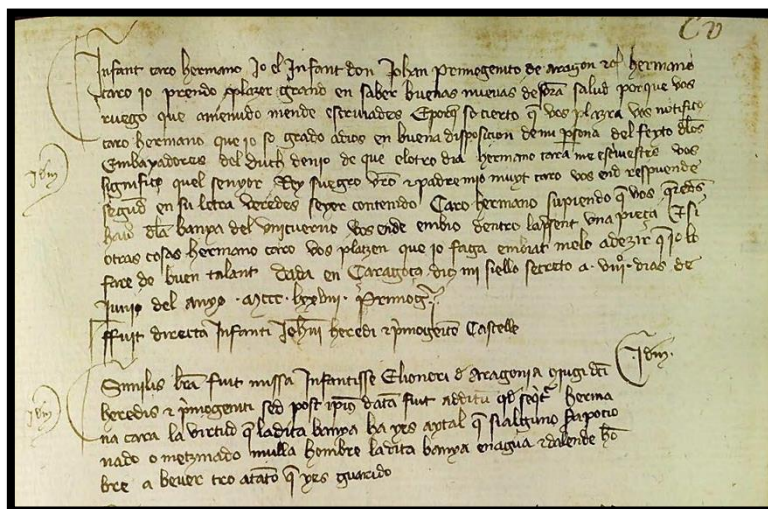 CV
Infant caro hermano Jo el Infant don Johan Primogenito de aragon &c hermano
caro io prendo plazer grand en saber buenas nuevas de vra salud porque vos
ruego que amenudo mende escrivades E porq so cierto q vos plazra vos notifico
caro hermano que io so grado adios en buena disposicion de mi psona del feyto dlos
Embaxadores del Duch denjo de que elotro dia hermano caro me escrivestes vos
significo quel senyor Rey suegro vro & padre mio muyt caro vos end respuende
segud en su letra veredes seyer contenido Caro hermano supiendo q vos qredes
haver dla banya del unicuerno vos ende embio dentro lapsent una pieca Et si
otras cosas hermano caro vos plazen que io faga embiat melo adezir q io lo
fare de buen talant dada en Caragoça dius mi siello secreto a viii dias de
Junio del anyo mccc lxxviii Primogs
ffuit directa Infanti Johni heredi & pmogenito Castelle
Idem
Similis lra fuit missa Infantisse Elionori d Aragonia conjugi dci
heredis & pmogeniti sed post ipius data fuit additu qd seqtr herma
na cara la virtud q ladita banya ha yes aytal q si alguno sapocio
nado o metzinado mulla hombre ladita banya en agua & dalende ho
bre a bever tro atanto q yes guarido
Idem
Idem